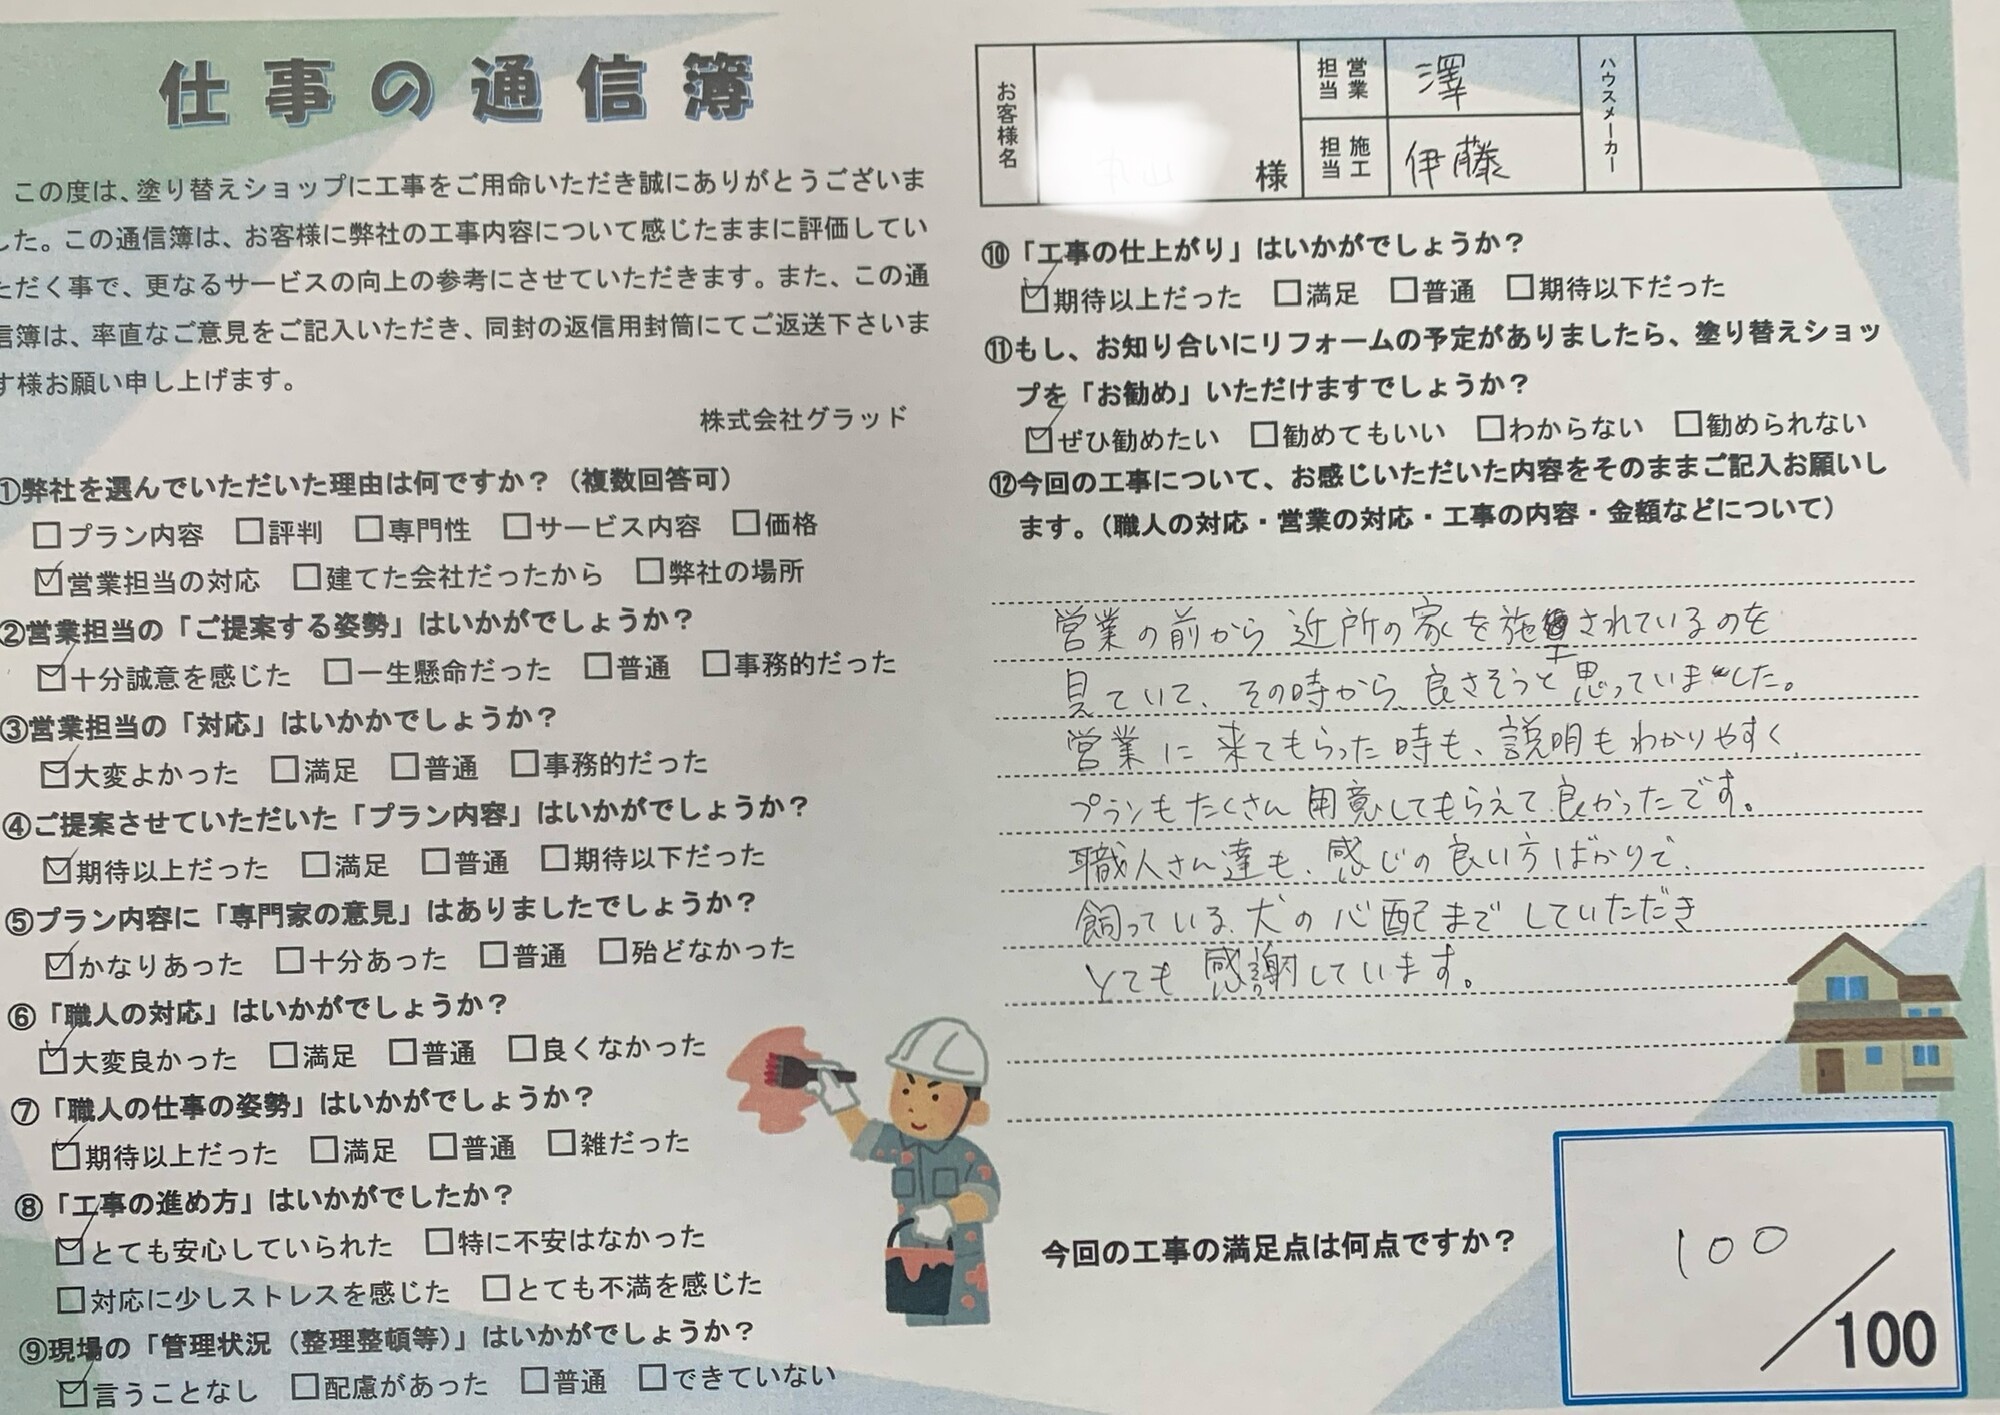 仕事の通信簿
この度は、塗り替えショップに工事をご用命いただき誠にありがとうございま
した。この通信簿は、お客様に弊社の工事内容について感じたままに評価してい
ただく事で、更なるサービスの向上の参考にさせていただきます。また、この通
信簿は、率直なご意見をご記入いただき、同封の返信用封筒にてご返送下さいま
す様お願い申し上げます。
株式会社グラッド
①弊社を選んでいただいた理由は何ですか？（複数回答可）
□プラン内容 □評判 □専門性 □サービス内容 □価格
☑営業担当の対応 □建てた会社だったから □弊社の場所
②営業担当の「ご提案する姿勢」はいかがでしょうか？
☑十分誠意を感じた □一生懸命だった □普通 □事務的だった
③営業担当の「対応」はいかかでしょうか？
☑大変よかった □満足 □普通 □事務的だった
④ご提案させていただいた「プラン内容」はいかがでしょうか？
☑期待以上だった □満足 □普通 □期待以下だった
⑤プラン内容に「専門家の意見」はありましたでしょうか？
☑かなりあった □十分あった □普通 □殆どなかった
⑥「職人の対応」はいかがでしょうか？
☑大変良かった □満足 □普通 □良くなかった
⑦「職人の仕事の姿勢」はいかがでしょうか？
☑期待以上だった □満足 □普通 □雑だった
⑧「工事の進め方」はいかがでしたか？
☑とても安心していられた □特に不安はなかった
□対応に少しストレスを感じた □とても不満を感じた
⑨現場の「管理状況（整理整頓等）」はいかがでしょうか？
☑言うことなし □配慮があった □普通 □できていない
お客様名
様
営業担当 澤
施工担当 伊藤
ハウスメーカー
⑩「工事の仕上がり」はいかがでしょうか？
☑期待以上だった □満足 □普通 □期待以下だった
⑪もし、お知り合いにリフォームの予定がありましたら、塗り替えショッ
プを「お勧め」いただけますでしょうか？
☑ぜひ勧めたい □勧めてもいい □わからない □勧められない
⑫今回の工事について、お感じいただいた内容をそのままご記入お願いし
ます。（職人の対応・営業の対応・工事の内容・金額などについて）
営業の前から近所の家を施工されているのを
見ていて、その時から良さそうと思っていました。
営業に来てもらった時も、説明もわかりやすく、
プランもたくさん用意してもらえて良かったです。
職人さん達も、感じの良い方ばかりで、
飼っている犬の心配までしていただき
とても感謝しています。
今回の工事の満足点は何点ですか？
100
／100